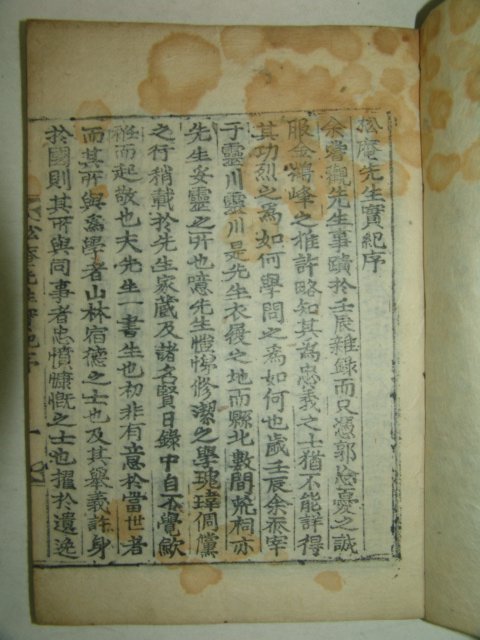 松庵先生實紀序
余嘗觀先生事蹟於壬辰雜錄而只憑郭忘憂之誠
服金鶴峰之推許略知其爲忠義之士猶不能詳得
其功烈之爲如何學問之爲如何也歲壬辰余忝宰
于靈川靈川是先生衣履之地而縣北數間荒祠亦
先生妥靈之所也噫先生愷悌修潔之學瑰瑋倜儻
之行稍載於先生家藏及諸名賢日錄中自不覺歛
衽而起敬也夫先生一書生也初非有意於當世者
而其所與爲學者山林宿德之士也及其擧義許身
於國則其所與同事者忠憤慷慨之士也擢於遺逸
松庵先生實紀序 一